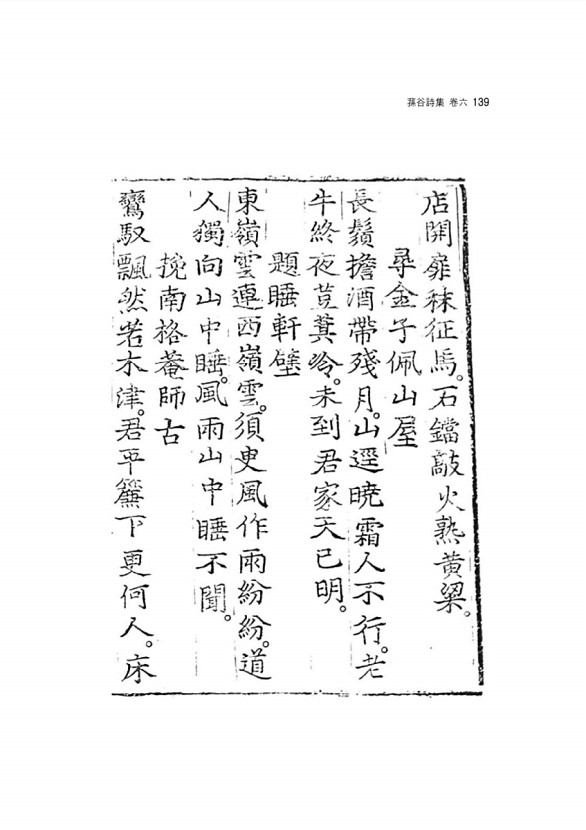 蓀谷詩集 卷六 139
店開扉秣征馬。石鐺敲火熟黃粱。
尋金子佩山屋
長鬚擔酒帶殘月。山逕曉霜人不行。老
牛終夜荳萁冷。未到君家天已明。
題睡軒壁
東嶺雲連西嶺雲。須臾風作雨紛紛。道
人獨向山中睡。風雨山中睡不聞。
挽南格菴師古
鸞馭飄然若木津。君平簾下更何人。床